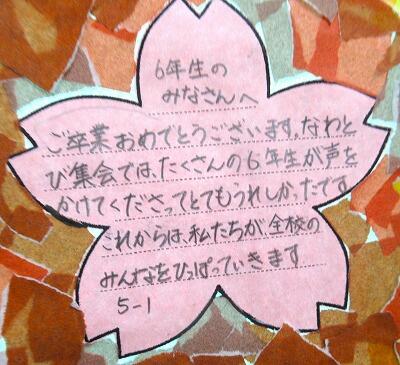 6年生の
みなさんへ
ご卒業おめでとうございます。なわと
び集会では、たくさんの6年生が声を
かけてくださってとてもうれしかったです
これからは、私たちが全校の
みんなをひっぱっていきます
5-1